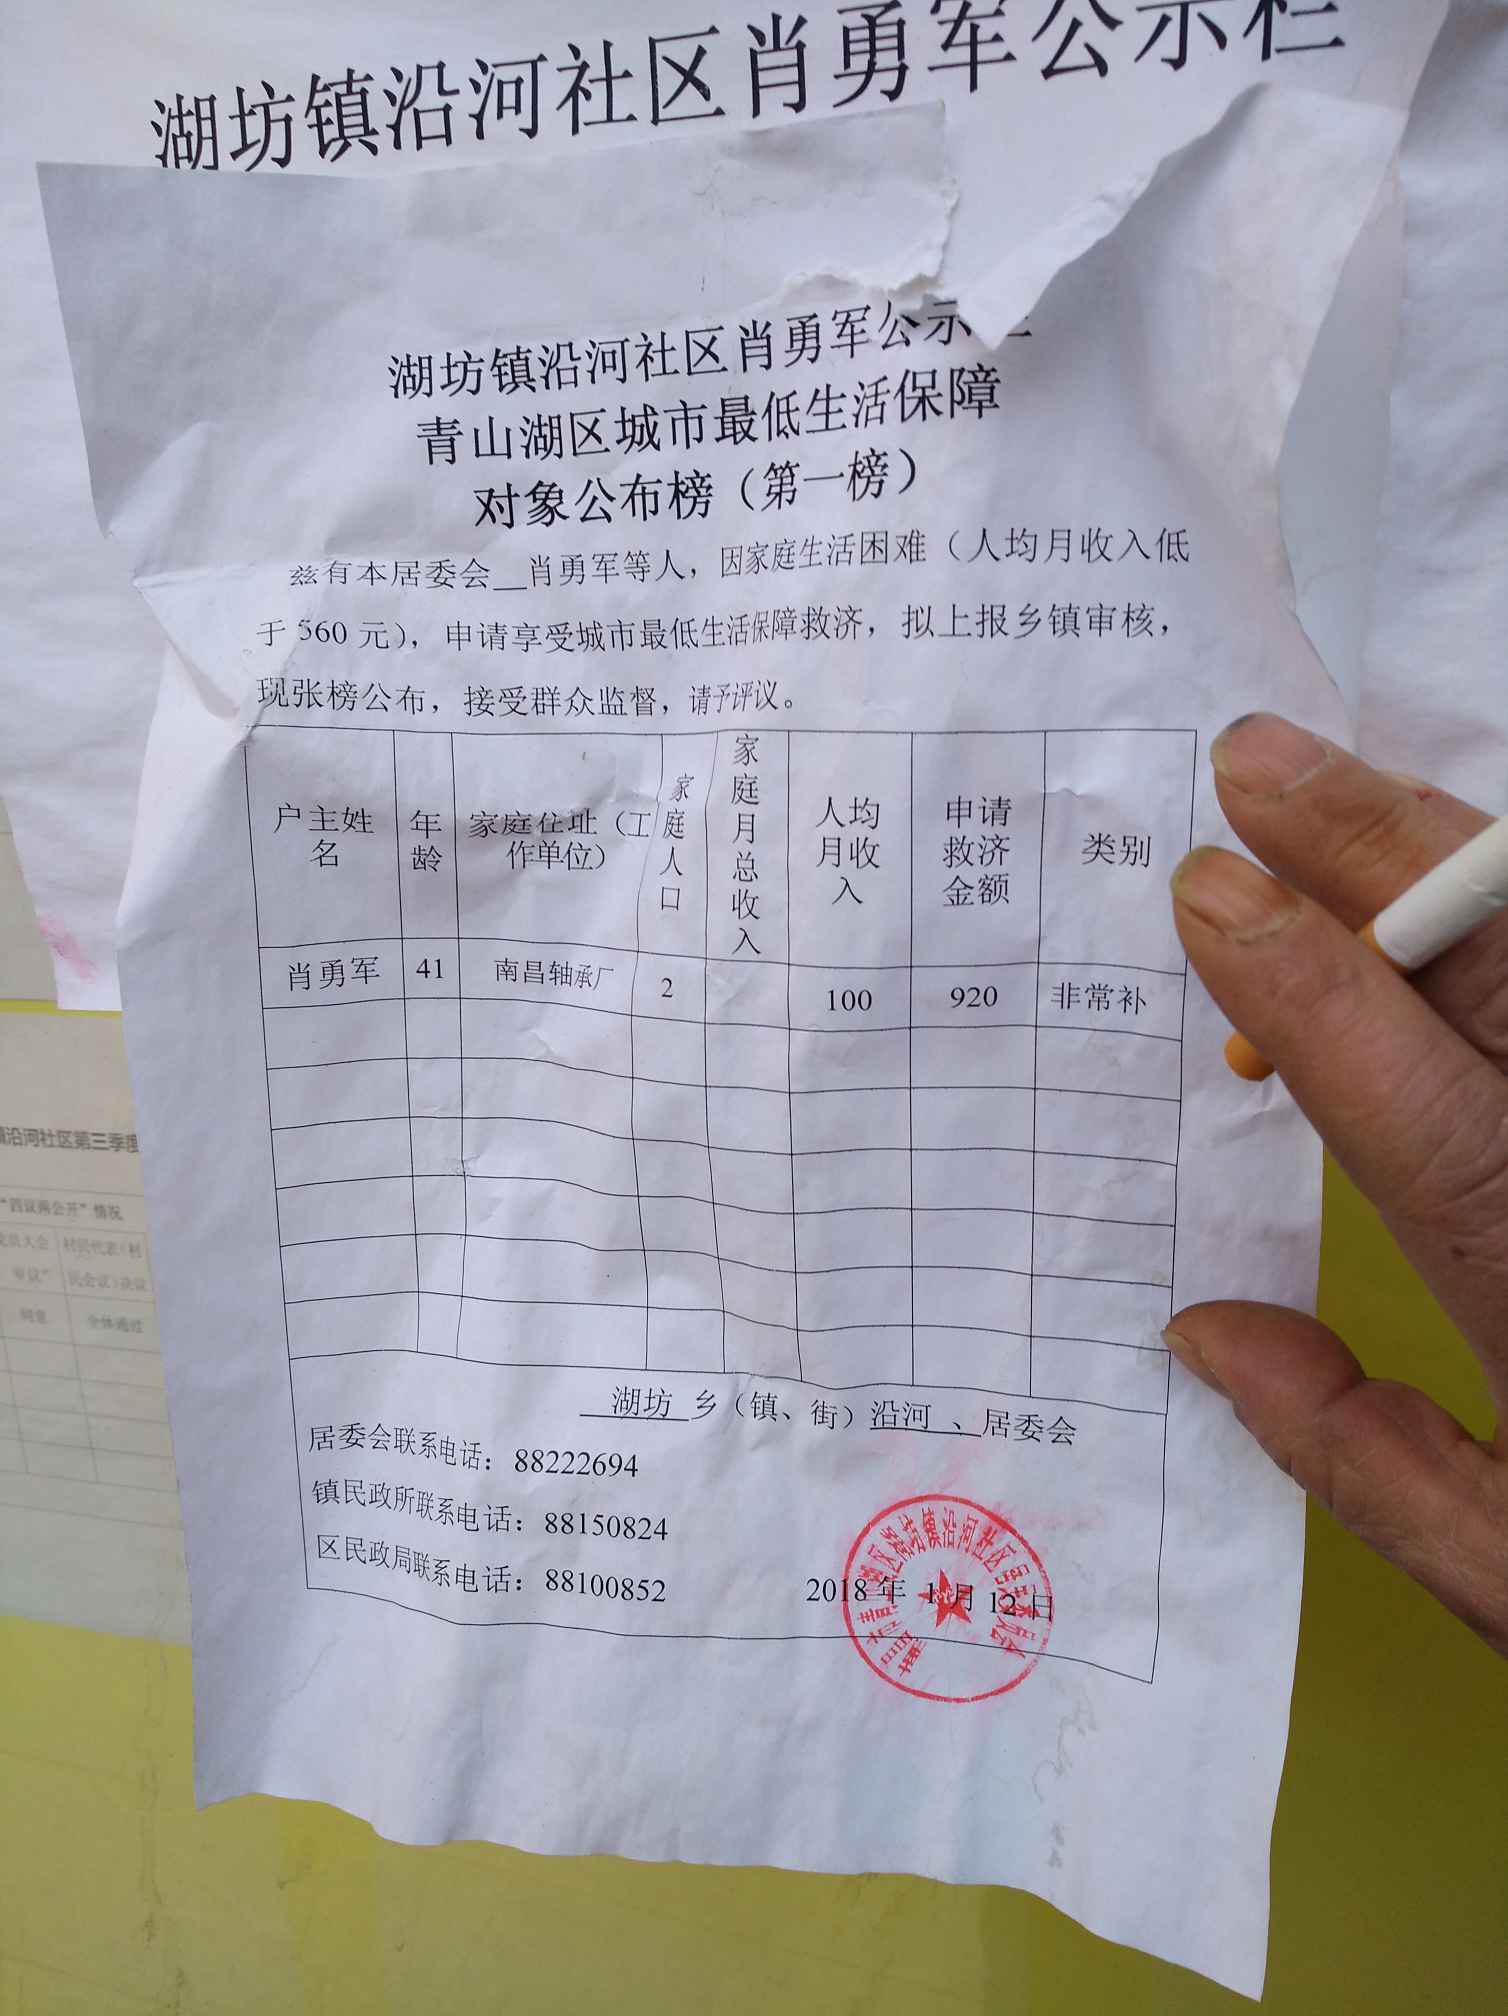 湖坊镇沿河社区肖勇军公示栏
湖坊镇沿河社区肖勇军公示
青山湖区城市最低生活保障
对象公布榜（第一榜）
兹有本居委会__肖勇军等人，因家庭生活困难（人均月收入低
于560元），申请享受城市最低生活保障救济，拟上报乡镇审核，
现张榜公布，接受群众监督，请予评议。
户主姓名 年龄 家庭住址（工作单位） 家庭人口 家庭月总收入 人均月收入 申请救济金额 类别
肖勇军 41 南昌轴承厂 2 100 920 非常补
湖坊 乡（镇、街）沿河 、居委会
居委会联系电话：88222694
镇民政所联系电话：88150824
区民政局联系电话：88100852
2018年 1月12日
沿河社区第三季度
“四议两公开”情况
大会 村民代表（村
审议” 民会议）决议
同意 全体通过